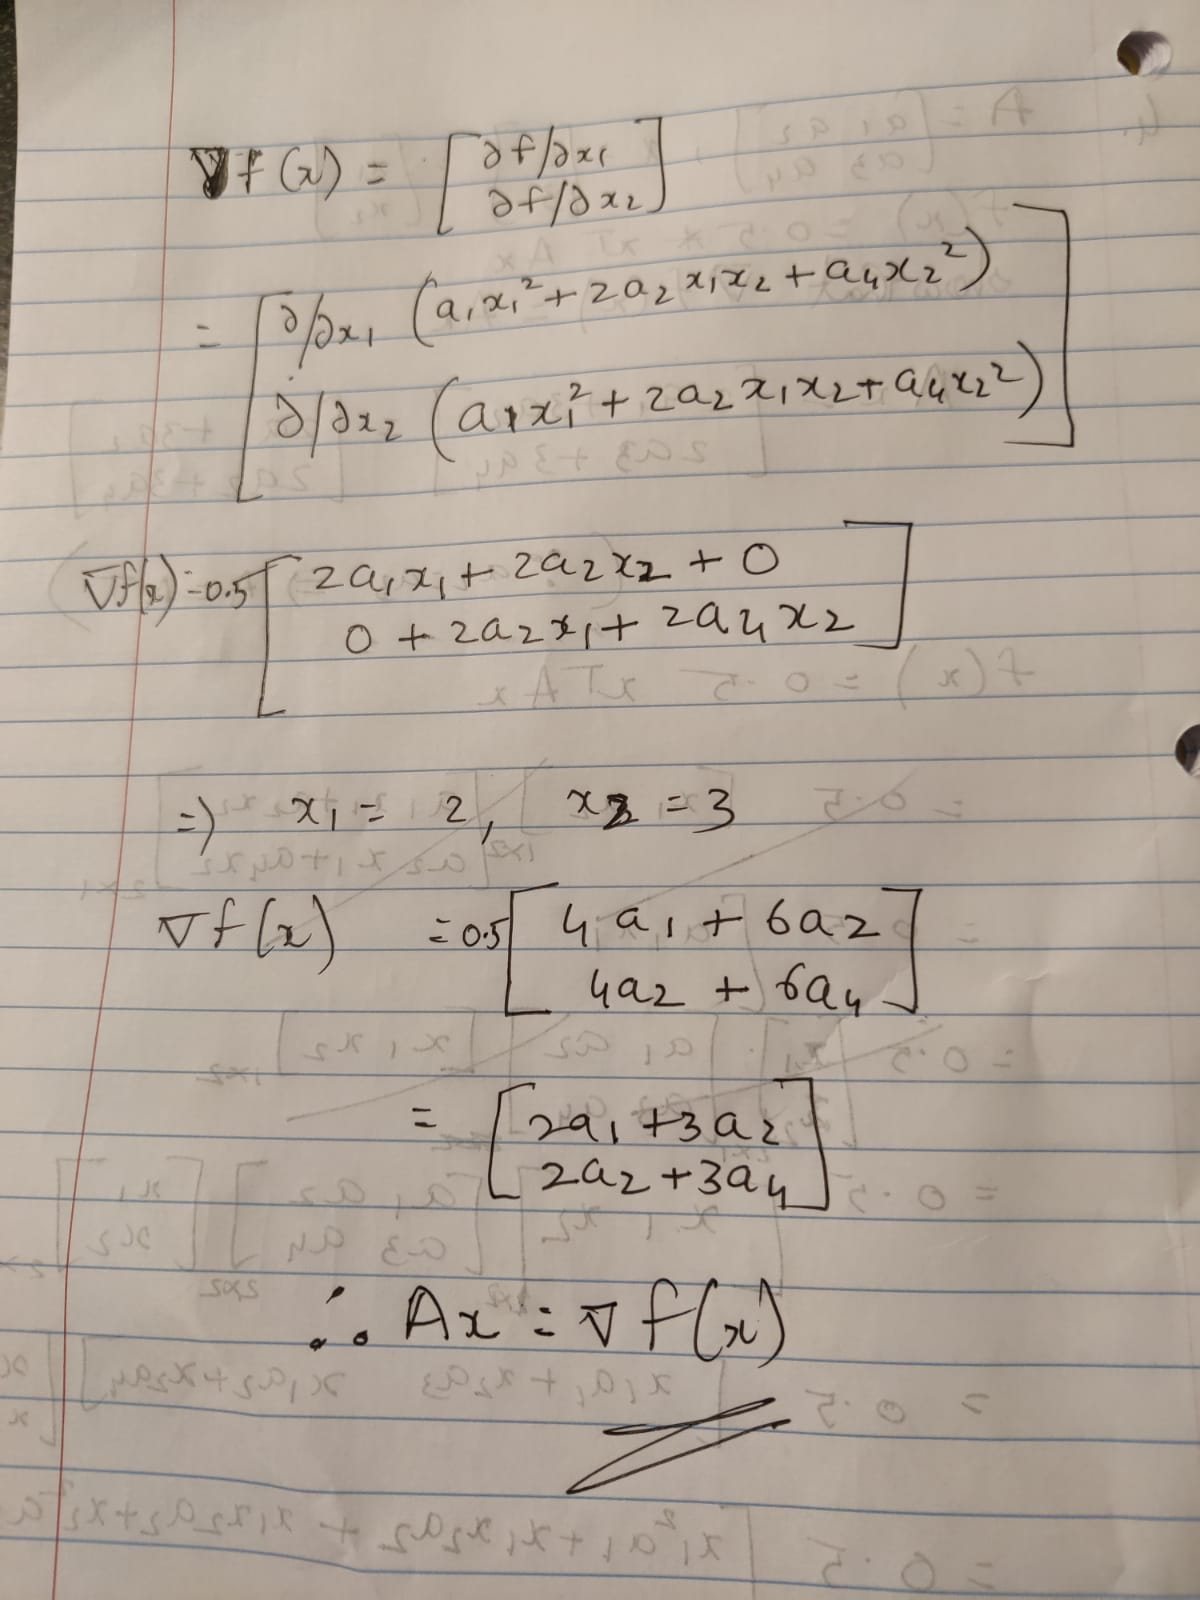 ∇f(x) = [∂f/∂x₁
∂f/∂x₂]
= [∂/∂x₁ (a₁x₁² + 2a₂x₁x₂ + a₄x₂²)
∂/∂x₂ (a₁x₁² + 2a₂x₁x₂ + a₄x₂²)]
∇f(x) = 0.5 [2a₁x₁ + 2a₂x₂ + 0
0 + 2a₂x₁ + 2a₄x₂]
=) x₁ = 2, x₂ = 3
∇f(x) = 0.5 [4a₁ + 6a₂
4a₂ + 6a₄]
= [2a₁ + 3a₂
2a₂ + 3a₄]
∴ Ax = ∇f(x)